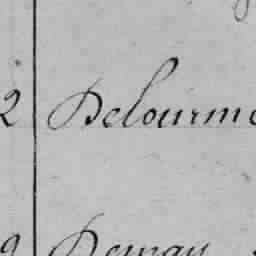 2 Delourme
9 Demay